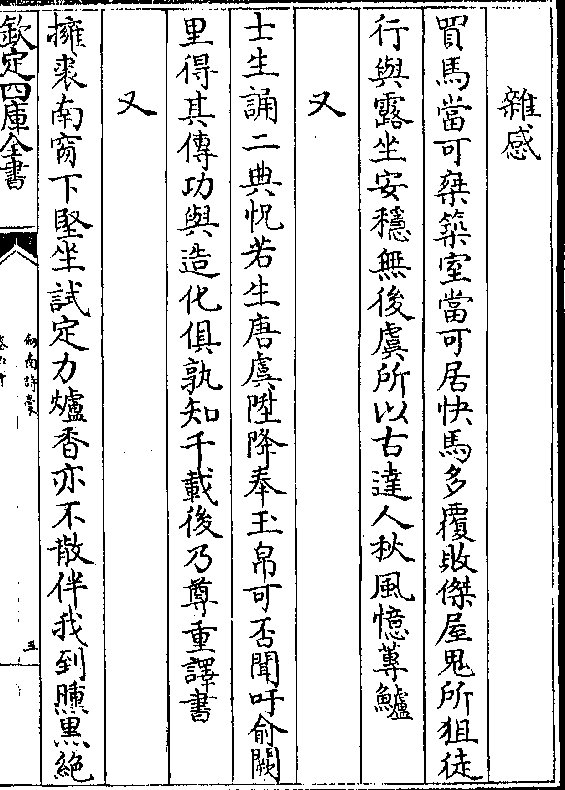 雜感
買馬當可椉築室當可居快馬多覆敗傑屋鬼所狙徒
行與露坐安穩無後虞所以古達人秋風憶蓴鱸
又
士生誦二典怳若生唐虞陞降奉玉帛可否聞吁俞闕
里得其傳功與造化俱孰知千載後乃尊重譯書
又
擁裘南窗下堅坐試定力爐香亦不散伴我到曛黒絶
欽定四庫全書
劍南詩稾
五